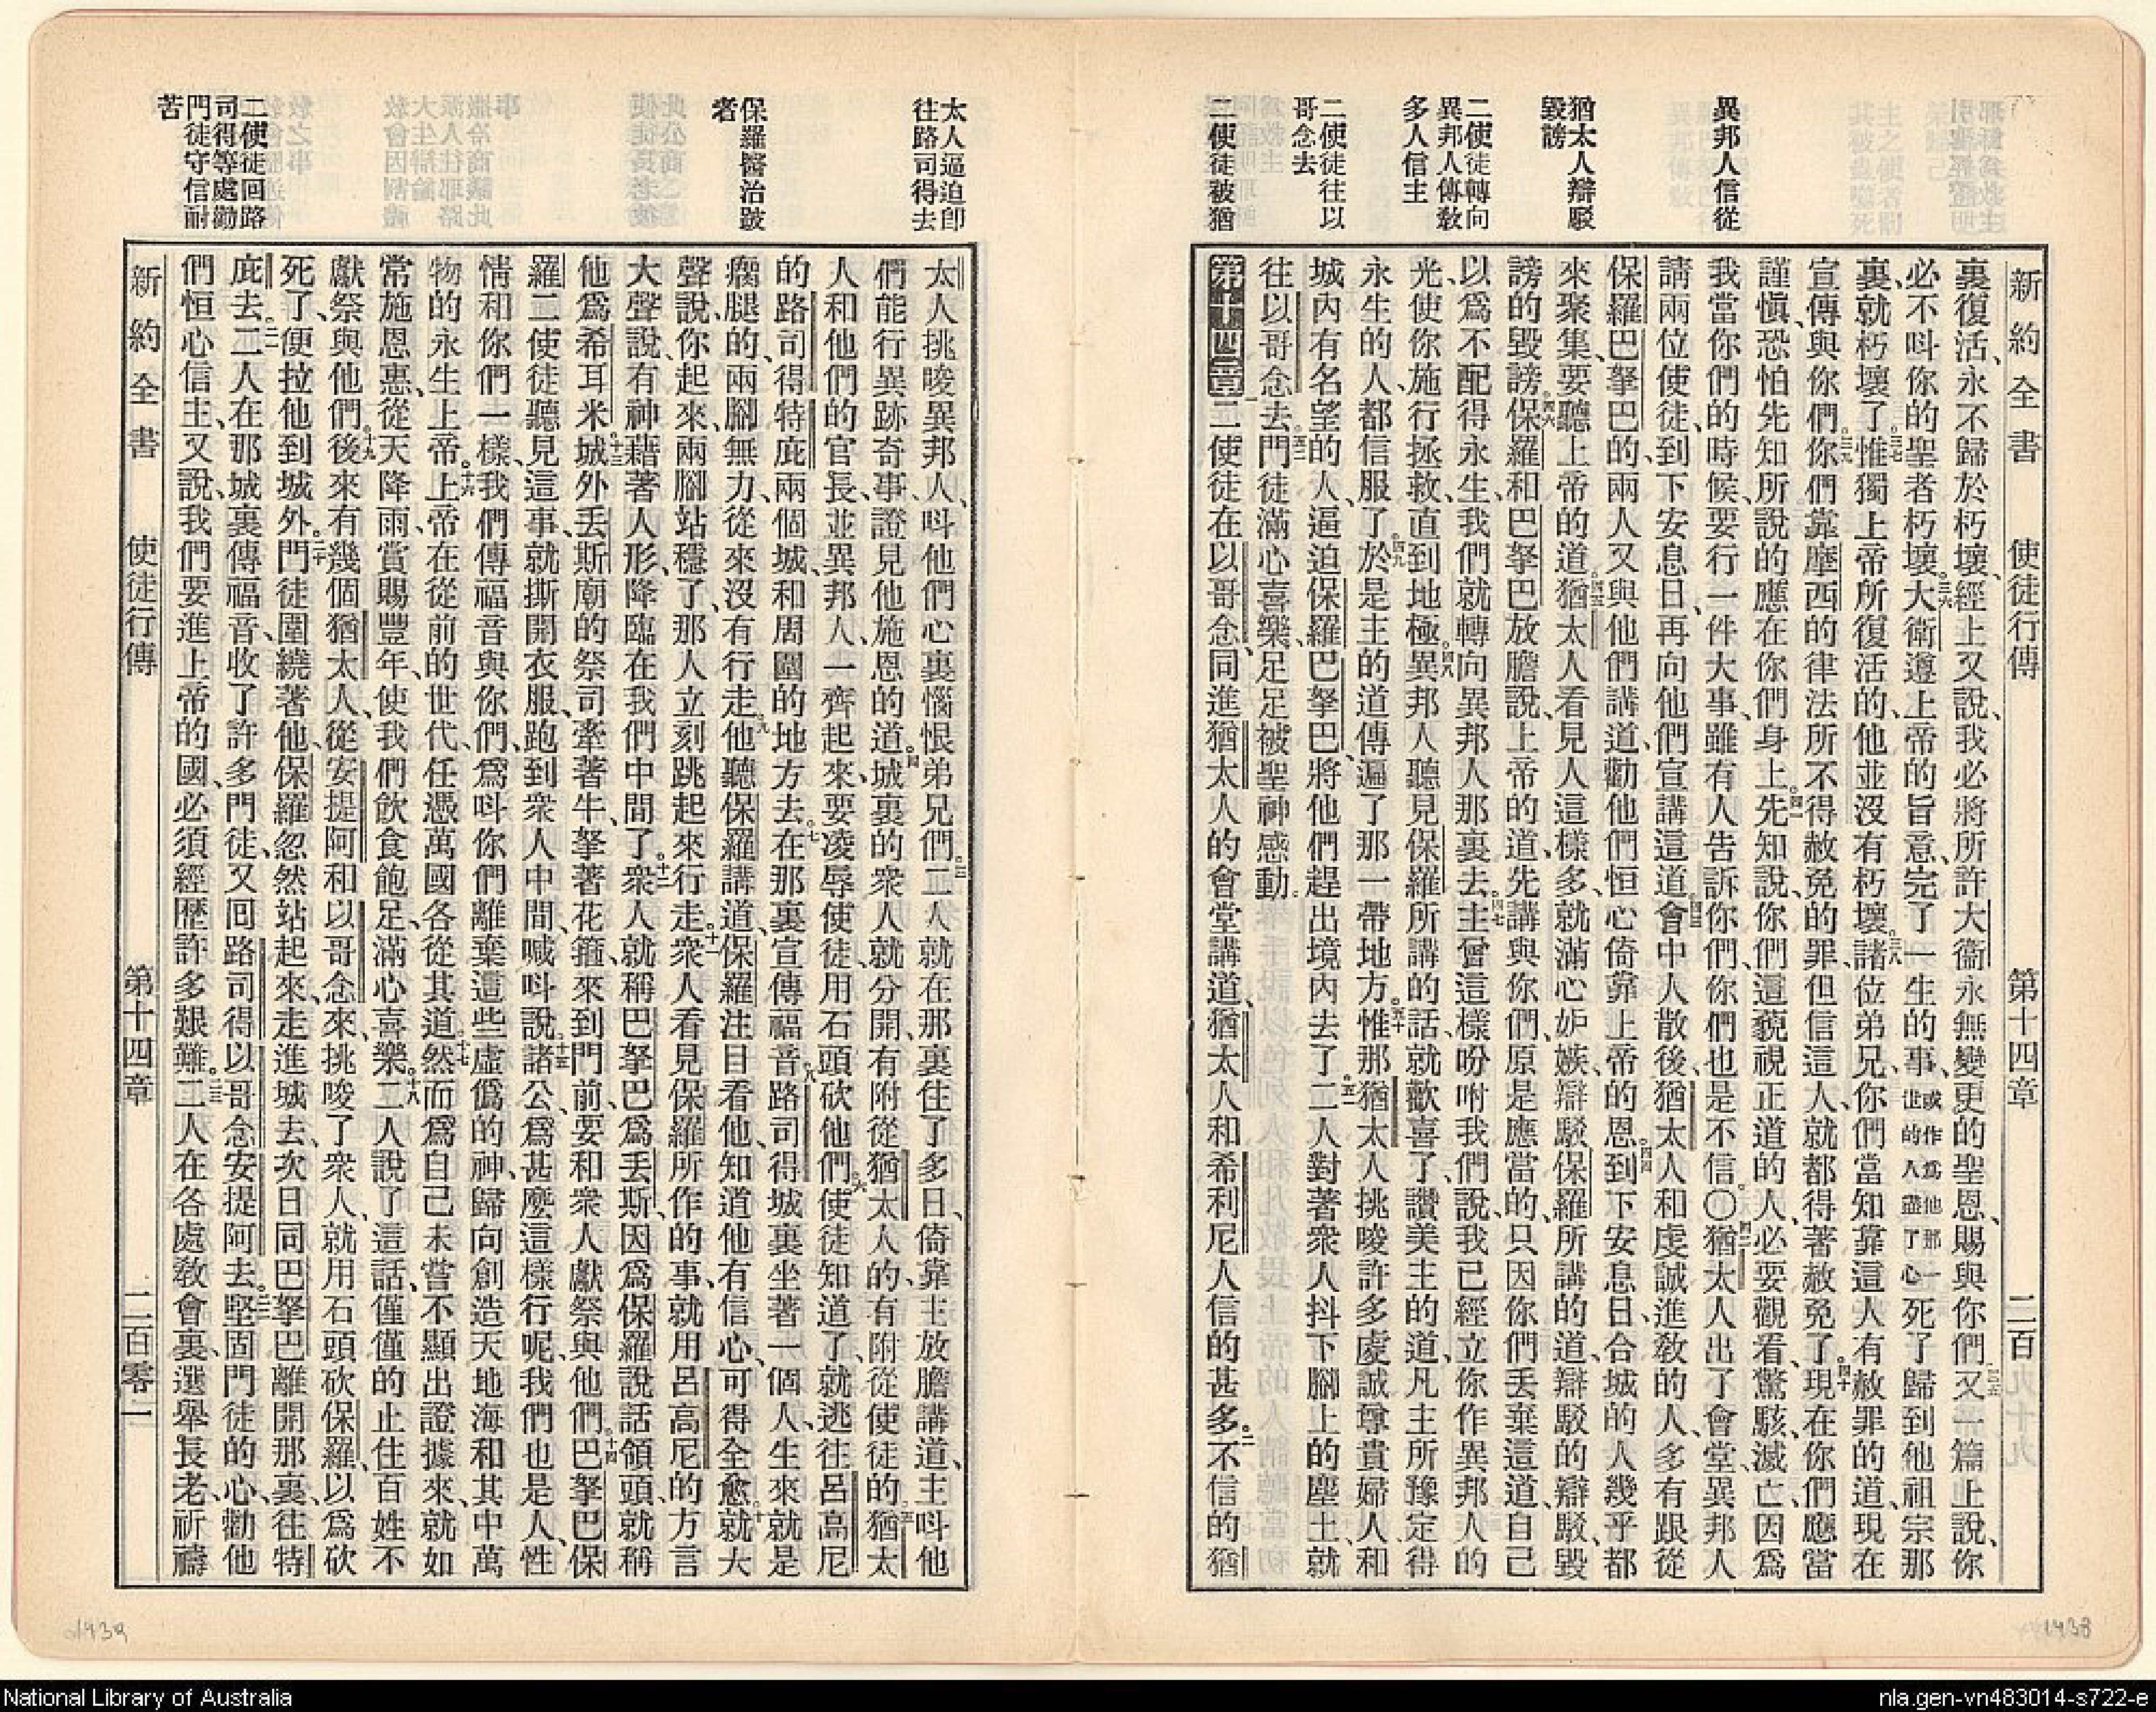 異邦人信從
猶太人辯駁
毀謗
二使徒轉向
異邦人傳敎
多人信主
二使徒往以
哥念去
二使徒被猶
新約全書 使徒行傳 第十四章 二百
裏復活、永不歸於朽壞、經上又說、我必將所許大衞永無變更的聖恩、賜與你們、三五又一篇上說、你
必不呌你的聖者朽壞。三六大衞遵上帝的旨意、完了一生的事、或作爲他那一世的人盡了心死了歸到他祖宗那
裏、就朽壞了、三七惟獨上帝所復活的、他並沒有朽壞。三八諸位弟兄、你們當知靠這人有赦罪的道、現在
宣傳與你們、三九你們靠摩西的律法所不得赦免的罪、但信這人、就都得著赦免了。四十現在你們應當
謹愼、恐怕先知所說的應在你們身上。四一先知說、你們這藐視正道的人、必要觀看、驚駭、滅亡、因爲
我當你們的時候、要行一件大事、雖有人告訴你們、你們也是不信。〇四二猶太人出了會堂、異邦人
請兩位使徒、到下安息日、再向他們宣講這道。四三會中人散後、猶太人和虔誠進敎的人、多有跟從
保羅巴拏巴的、兩人又與他們講道、勸他們恒心倚靠上帝的恩。四四到下安息日、合城的人幾乎都
來聚集、要聽上帝的道。四五猶太人看見人這樣多、就滿心妒嫉、辯駁保羅所講的道、辯駁的辯駁、毀
謗的毀謗。四六保羅和巴拏巴放膽說、上帝的道、先講與你們、原是應當的、只因你們丟棄這道、自己
以爲不配得永生、我們就轉向異邦人那裏去。四七主曾這樣吩咐我們說、我已經立你作異邦人的
光、使你施行拯救、直到地極。四八異邦人聽見保羅所講的話、就歡喜了、讚美主的道、凡主所豫定得
永生的人、都信服了。四九於是主的道傳遍了那一帶地方。五十惟那猶太人挑唆許多虔誠尊貴婦人和
城內有名望的人、逼迫保羅巴拏巴、將他們趕出境內去了。五一二人對著衆人抖下腳上的塵土、就
往以哥念去。五二門徒滿心喜樂、足足被聖神感動。
第十四章 一二使徒在以哥念、同進猶太人的會堂講道、猶太人和希利尼人信的甚多。二不信的猶
太人逼迫卽
往路司得去
保羅醫治跛
者
二使徒回路
司得等處勸
門徒守信耐
苦
太人挑唆異邦人、呌他們心裏惱恨弟兄們。三二人就在那裏住了多日、倚靠主放膽講道、主呌他
們能行異跡奇事、證見他施恩的道。四城裏的衆人就分開、有附從猶太人的、有附從使徒的。五猶太
人和他們的官長、並異邦人、一齊起來、要凌辱使徒、用石頭砍他們。六使徒知道了、就逃往呂高尼
的路司得特庇兩個城、和周圍的地方去。七在那裏宣傳福音。八路司得城裏坐著一個人、生來就是
瘸腿的、兩腳無力、從來沒有行走。九他聽保羅講道、保羅注目看他、知道他有信心、可得全愈。十就大
聲說、你起來、兩腳站穩了、那人立刻跳起來行走。十一衆人看見保羅所作的事、就用呂高尼的方言
大聲說、有神藉著人形、降臨在我們中間了。十二衆人就稱巴拏巴爲丢斯、因爲保羅說話領頭、就稱
他爲希耳米。十三城外丢斯廟的祭司、牽著牛、拏著花箍、來到門前、要和衆人獻祭與他們。十四巴拏巴保
羅二使徒聽見這事、就撕開衣服、跑到衆人中間、喊呌說、十五諸公爲甚麼這樣行呢、我們也是人、性
情和你們一樣、我們傳福音與你們、爲呌你們離棄這些虛僞的神、歸向創造天地海和其中萬
物的永生上帝。十六上帝在從前的世代、任憑萬國各從其道。十七然而爲自己未嘗不顯出證據來、就如
常施恩惠、從天降雨、賞賜豐年、使我們飲食飽足、滿心喜樂。十八二人說了這話、僅僅的止住百姓不
獻祭與他們。十九後來有幾個猶太人、從安提阿和以哥念來、挑唆了衆人、就用石頭砍保羅、以爲砍
死了、便拉他到城外。二十門徒圍繞著他、保羅忽然站起來、走進城去、次日同巴拏巴離開那裏、往特
庇去。二一二人在那城裏傳福音、收了許多門徒、又回路司得以哥念安提阿去。二二堅固門徒的心、勸他
們恒心信主、又說、我們要進上帝的國、必須經歷許多艱難。二三二人在各處敎會裏、選舉長老、祈禱
新約全書 使徒行傳 第十四章 二百零一
1439
1438
National Library of Australia
nla.gen-vn483014-s722-e